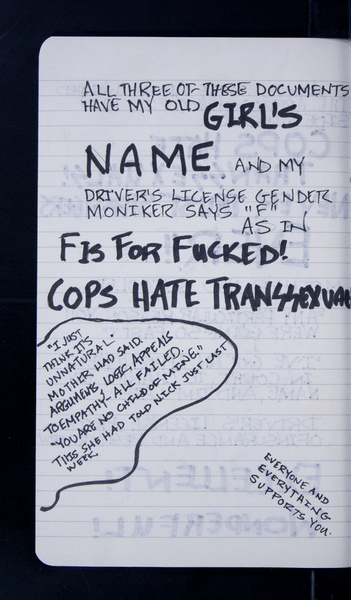 ALL THREE OF THESE DOCUMENTS
HAVE MY OLD GIRL'S
NAME. AND MY
DRIVER'S LICENSE GENDER
MONIKER SAYS "F"
AS IN
F IS FOR FUCKED!
COPS HATE TRANSSEXUAL
"I JUST
THINK IT'S
UNNATURAL."
MOTHER HAD SAID.
ARGUMENTS, LOGIC, APPEALS
TO EMPATHY - ALL FAILED.
"YOU ARE NO CHILD OF MINE."
THIS SHE HAD TOLD NICK JUST LAST
WEEK.
EVERYONE AND
EVERYTHING
SUPPORTS YOU.